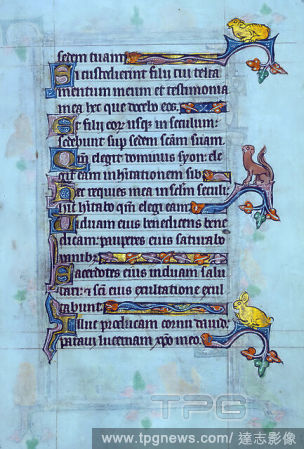 sedem tuam
Si custodierint filij tui testa
mentum meum et testimonia
mea hec que docebo eos.
Et filij eoꝝ usqꝫ in seculum:
sedebunt sup sedem tuam.
Qm̄ elegit dominus syon: ele
git eam in hitationem sibi
Hec requies mea in sclm seculi:
hic hitabo qm̄ elegi eam
Viduam eius benedicens bene
dicam: pauperes eius saturabo
panibꝫ
Sacerdotes eius induam salu
tari: et sci eius exultatione exul
tabunt
Illuc producam cornu dauid
paraui lucernam xp̄o meo.
TPG
www.tpgnews.com/ 達志影像